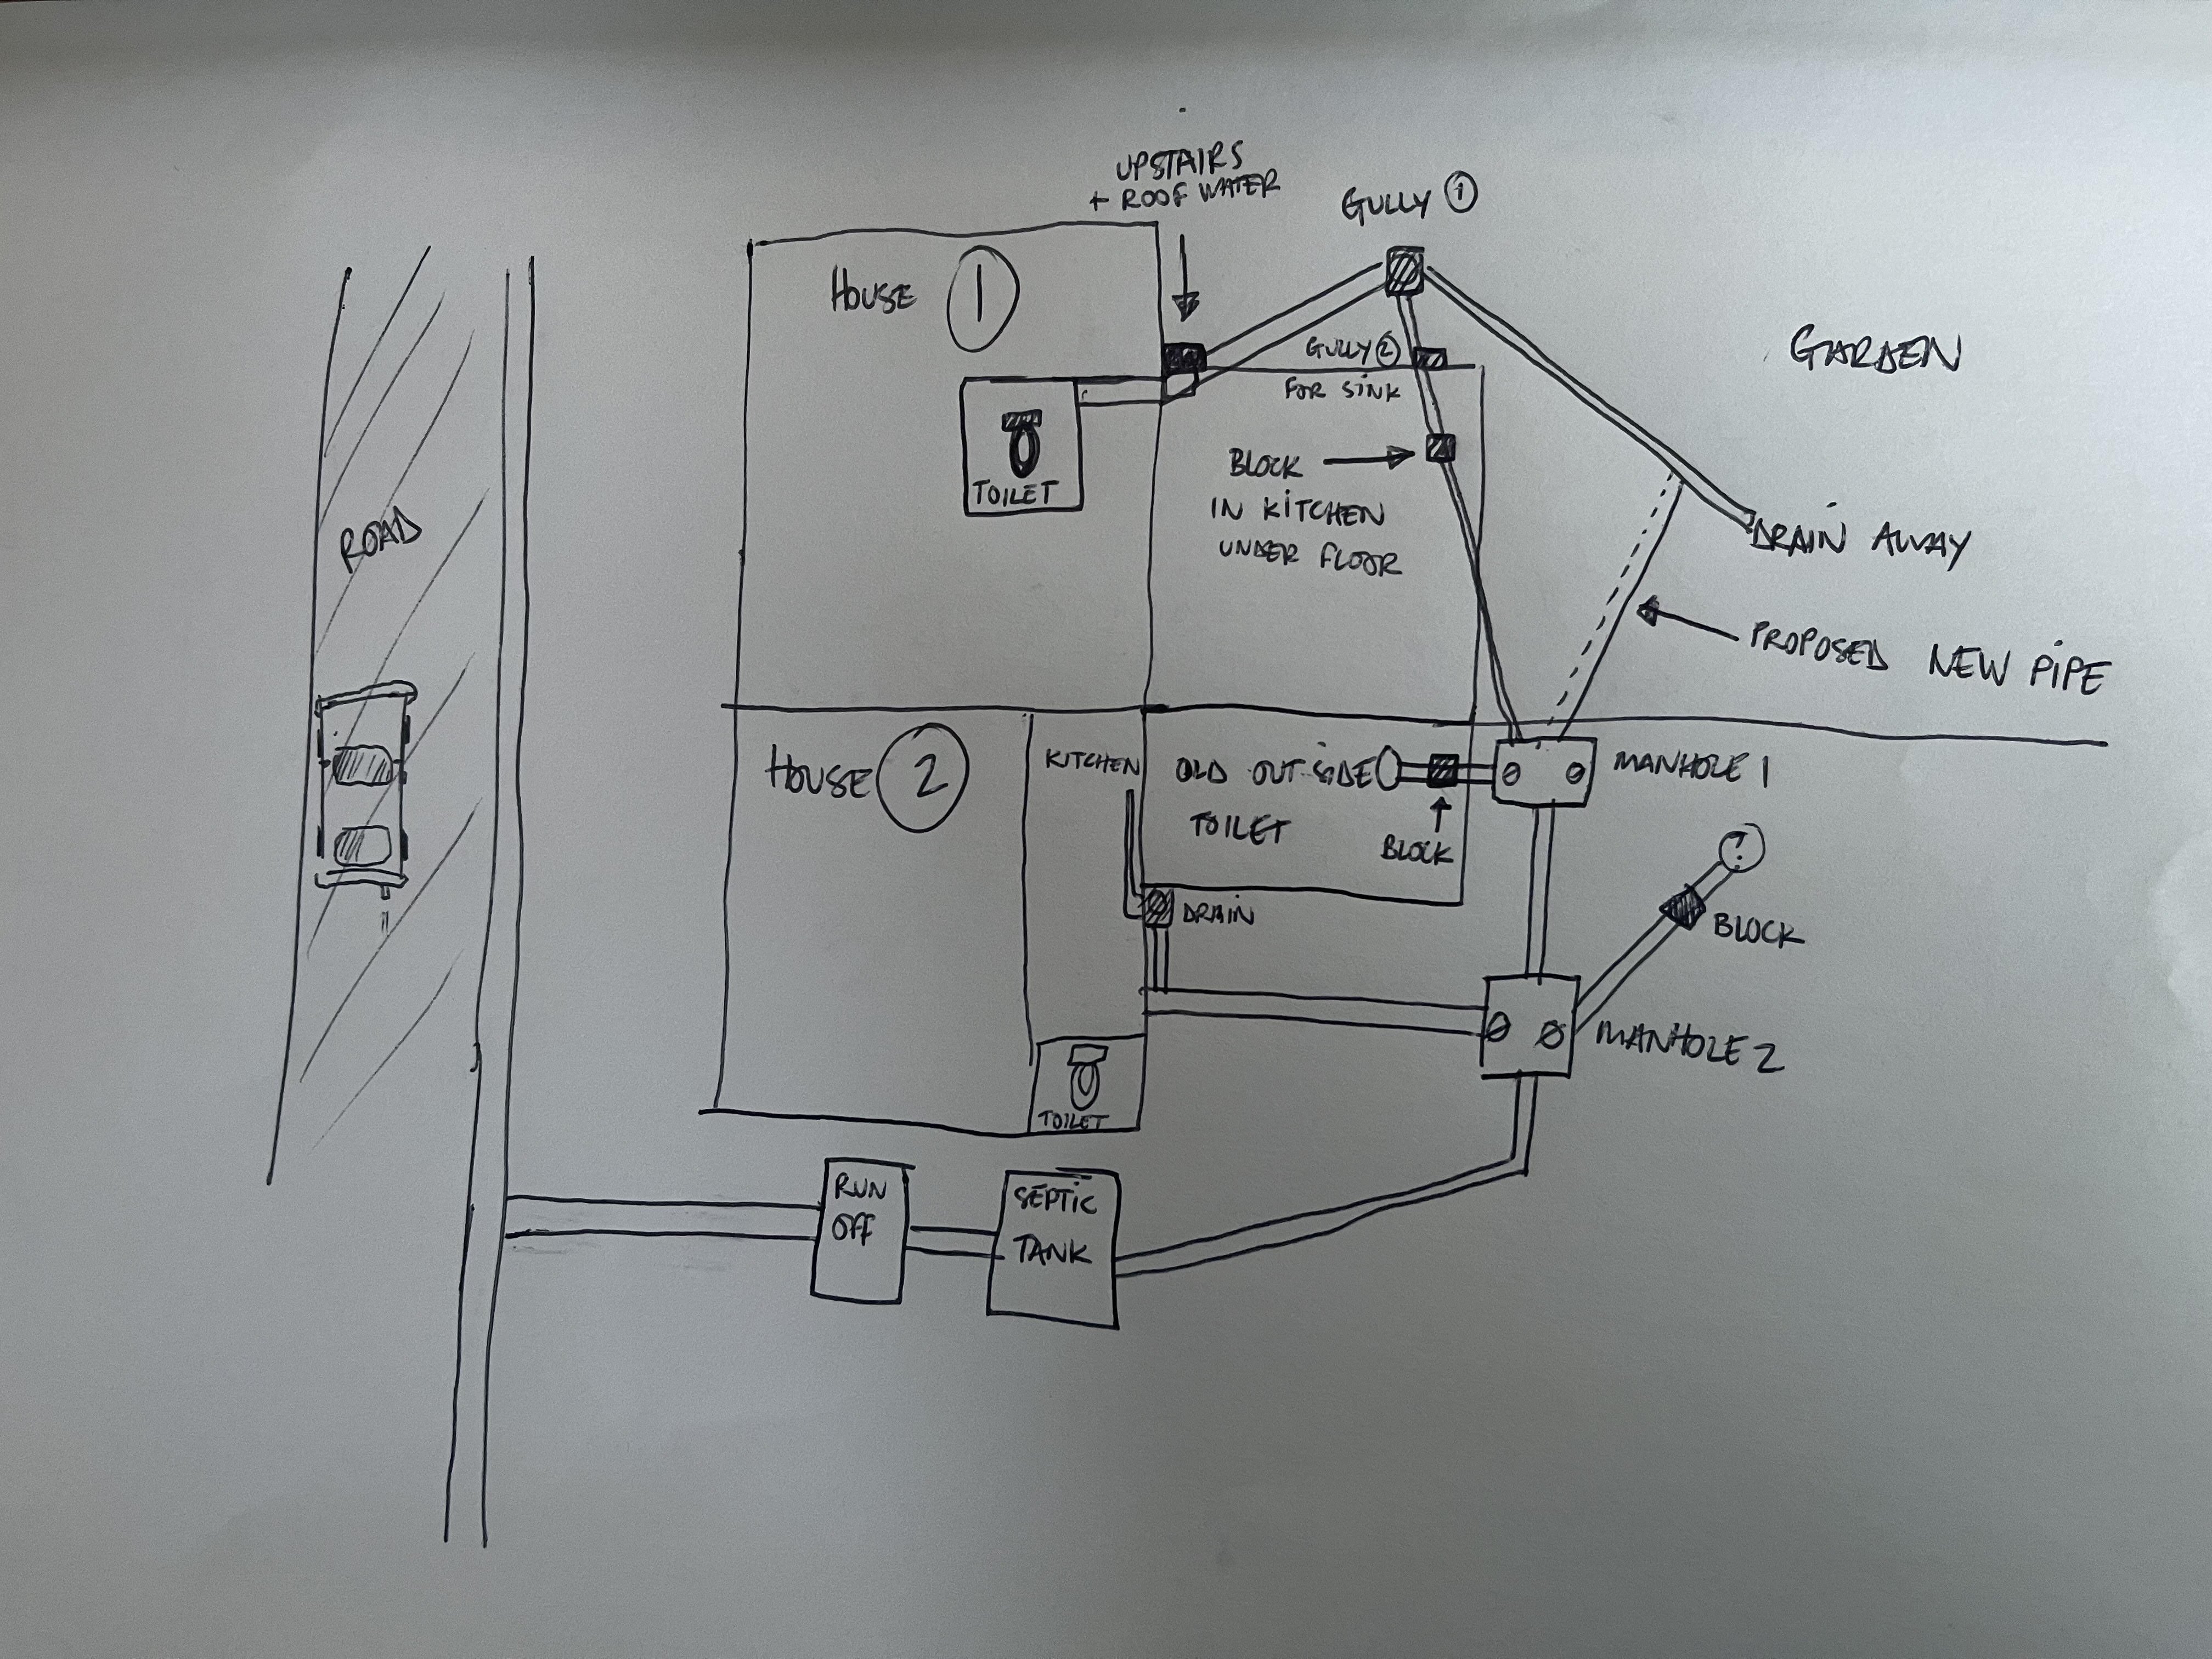 UPSTAIRS
+ ROOF WATER
GULLY ①
HOUSE ①
GULLY ②
FOR SINK
GARDEN
TOILET
BLOCK
IN KITCHEN
UNDER FLOOR
ROAD
DRAIN AWAY
PROPOSED NEW PIPE
HOUSE ②
KITCHEN
OLD OUTSIDE
TOILET
BLOCK
MANHOLE 1
?
BLOCK
DRAIN
MANHOLE 2
TOILET
RUN
OFF
SEPTIC
TANK